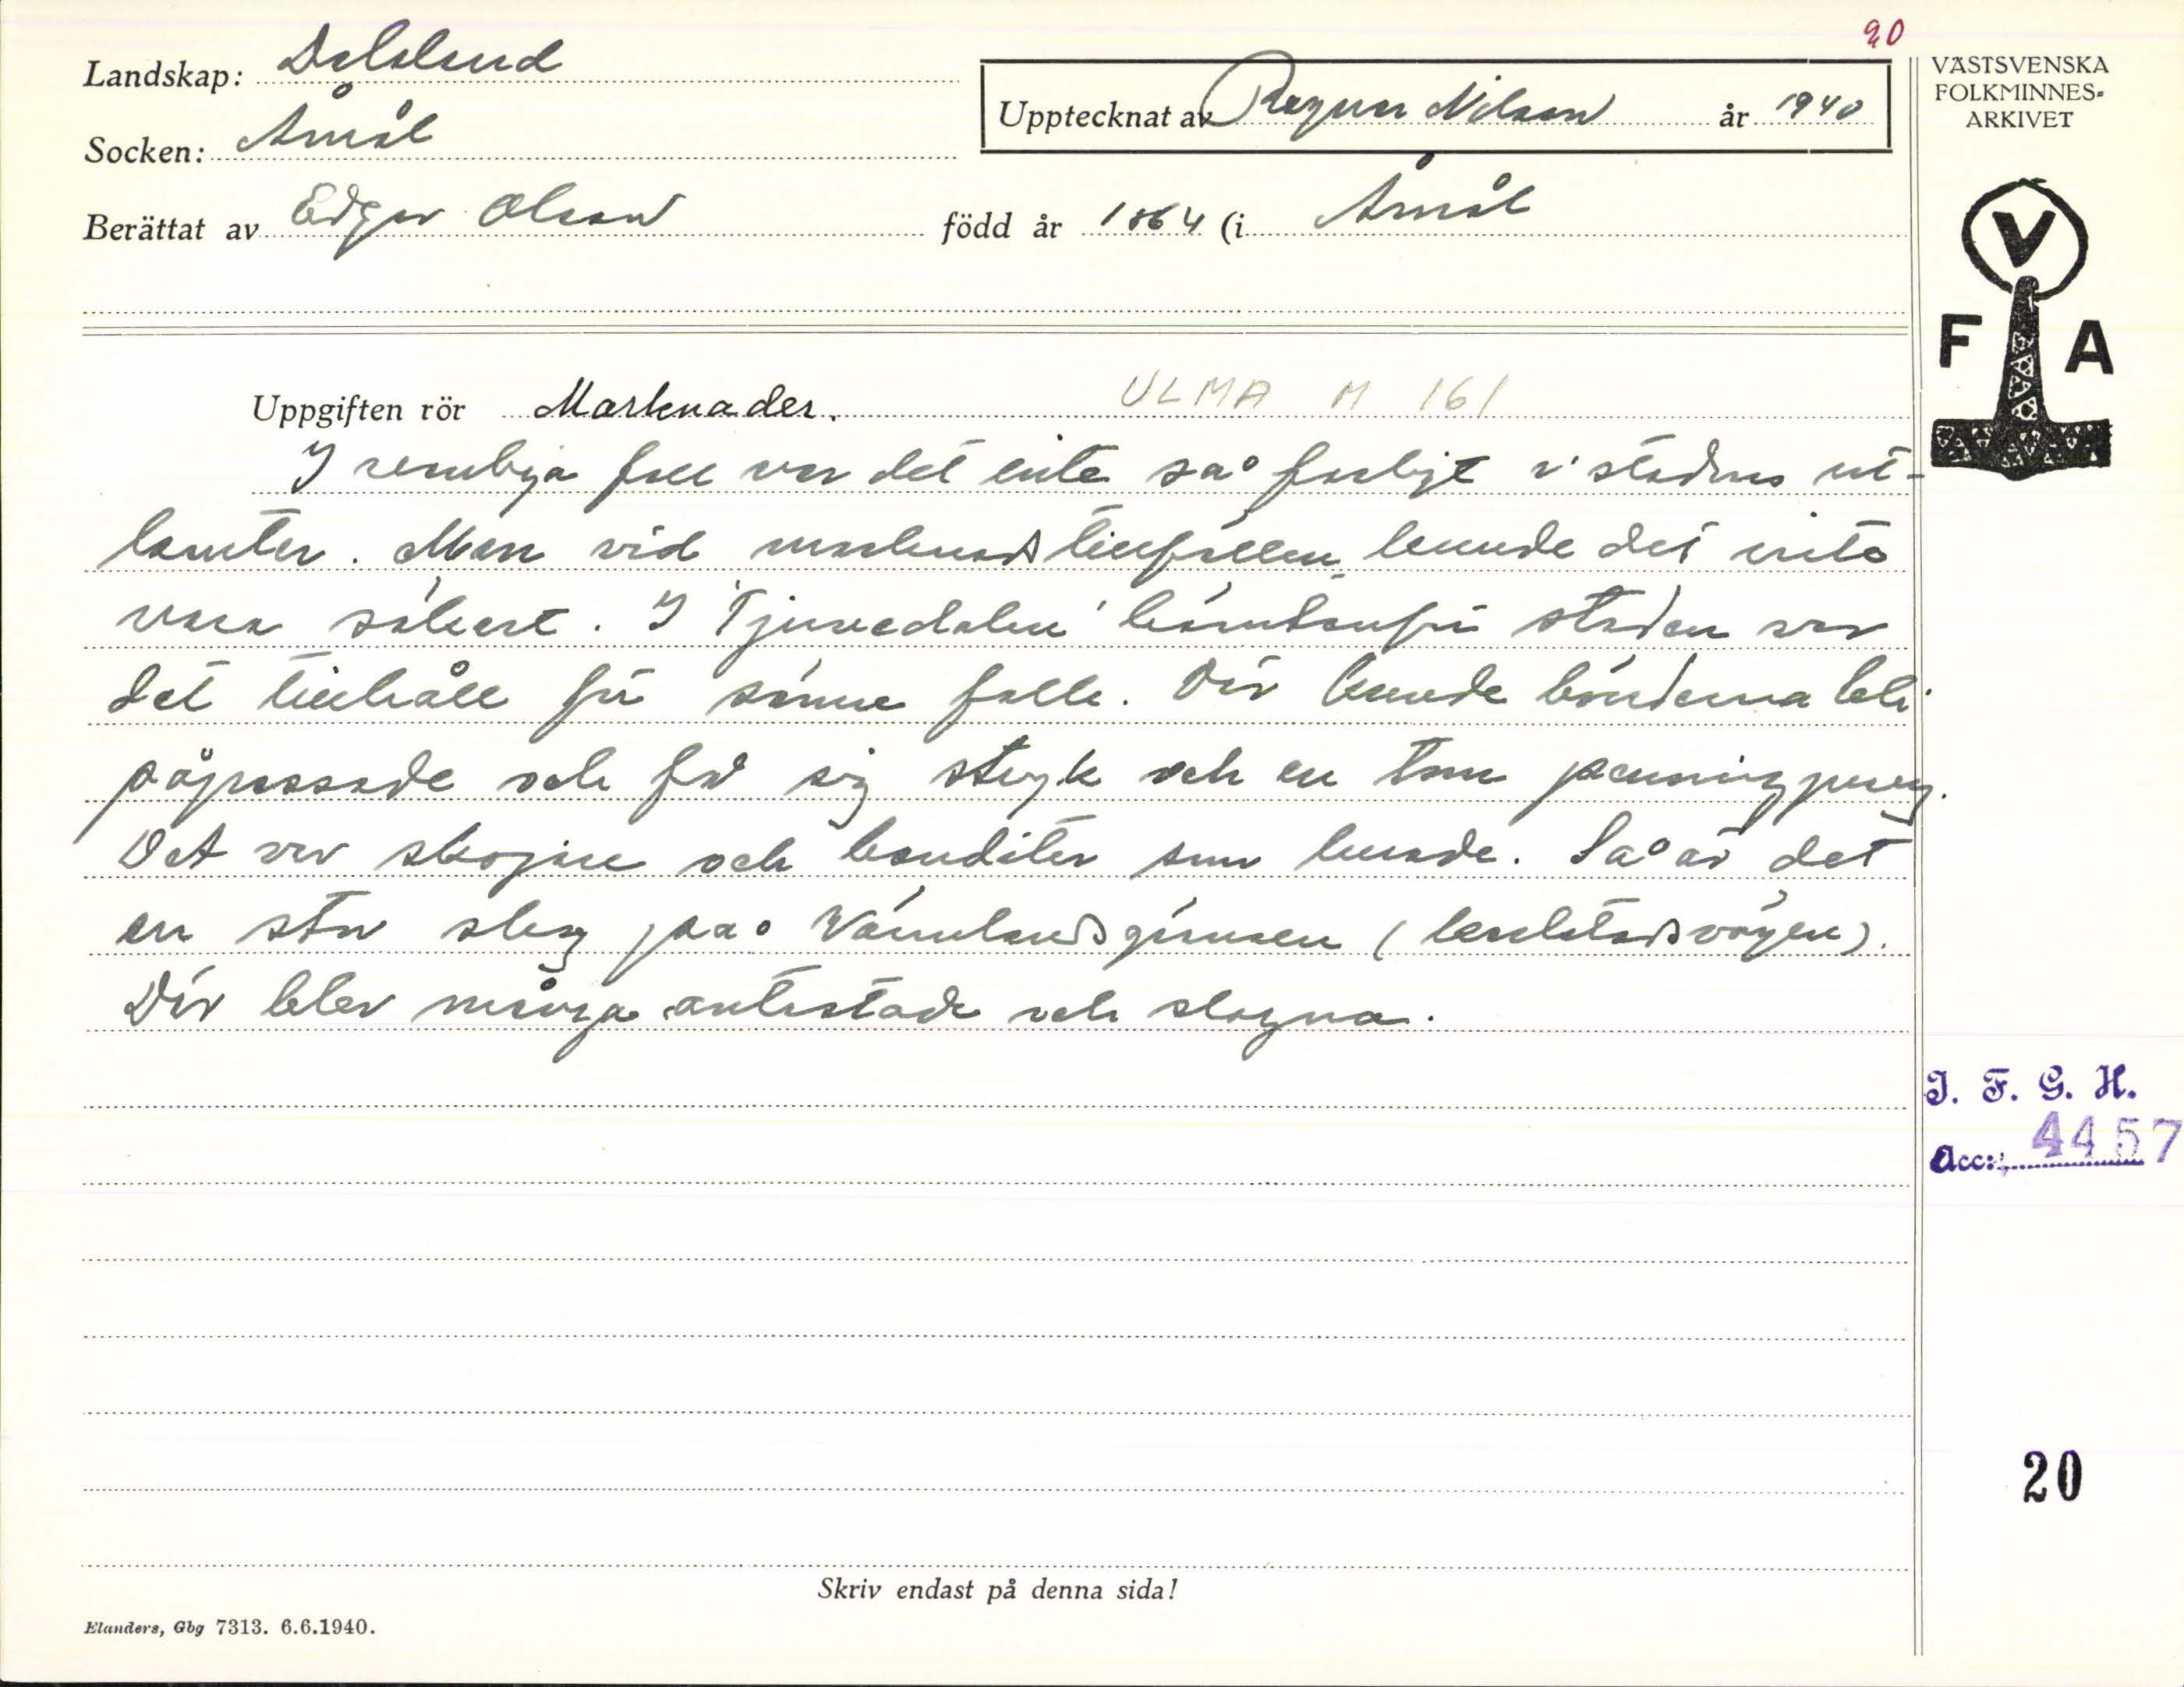 20
Landskap: Dalsland
Socken: Åmål
Upptecknat av Ragnar Nilsson år 1940
Berättat av Edgar Olsson född år 1864 (i Åmål
VÄSTSVENSKA
FOLKMINNES-
ARKIVET
V
F A
Uppgiften rör Marknader. ULMA M 161
I vanliga fall var det inte så farligt i stadens ut-
kanter. Men vid marknadstillfällen kunde det inte
vara säkert. I 'Tjuvedalen' bortanför staden var
det tillhåll för sånne folk. Där kunde bönderna bli
påpassade och få sig stryk och en tom penningpung.
Det var skojare och banditer som lurade. Så är det
en stor skog på Värmlandsgränsen (karlstadsvägen).
Där blev många antastade och slagna.
I. F. G. H.
Acc:. 4457
20
Skriv endast på denna sida!
Elanders, Gbg 7313. 6.6.1940.